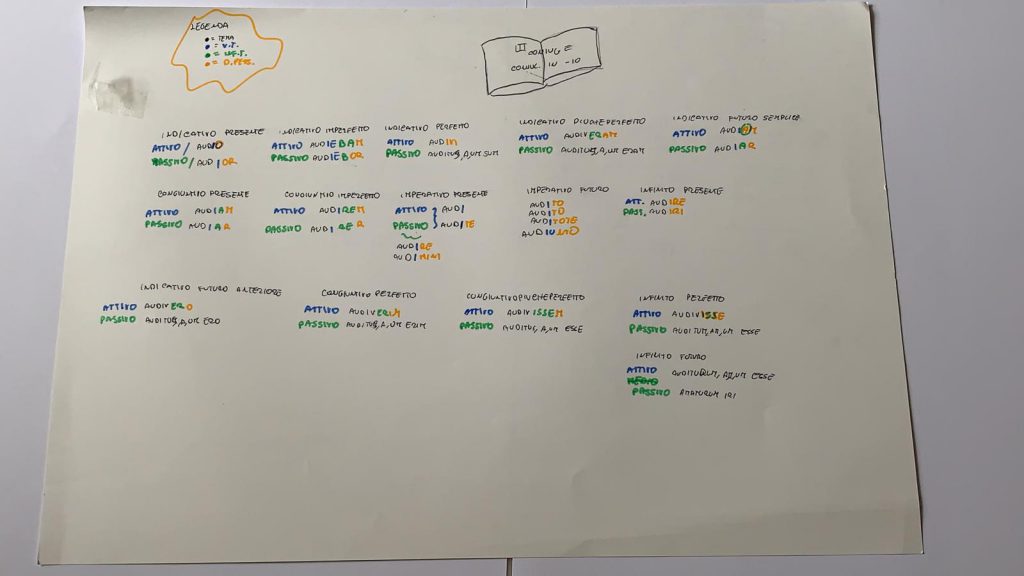 LEGENDA
= TEMA
= V.T.
= D.PERS.
III CONIUG E
CONIUG. IN -IO
INDICATIVO PRESENTE
ATTIVO / AUDIO
PASSIVO / AUDIOR
INDICATIVO IMPERFETTO
ATTIVO AUDIEBAM
PASSIVO AUDIEBOR
INDICATIVO PERFETTO
ATTIVO
PASSIVO AUDITUS,A,UM SUM
INDICATIVO PIUCHEPERFETTO
ATTIVO AUDIVERAM
PASSIVO AUDITUS,A,UM ERAM
INDICATIVO FUTURO SEMPLICE
ATTIVO AUDIAM
PASSIVO AUDIAR
CONGIUNTIVO PRESENTE
ATTIVO AUDIAM
PASSIVO AUDIAR
CONGIUNTIVO IMPERFETTO
ATTIVO AUDIREM
PASSIVO AUDIRER
IMPERATIVO PRESENTE
ATTIVO AUDI
PASSIVO AUDITE
AUDIRE
AUDIMINI
IMPERATIVO FUTURO
AUDITO
AUDITO
AUDITOTE
AUDIUNTO
INFINITO PRESENTE
ATT. AUDIRE
PASS. AUDIRI
INDICATIVO FUTURO ANTERIORE
ATTIVO AUDIVERO
PASSIVO AUDITUS,A,UM ERO
CONGIUNTIVO PERFETTO
ATTIVO AUDIVERIM
PASSIVO AUDITUS,A,UM ERIM
CONGIUNTIVO PIUCHEPERFETTO
ATTIVO AUDIVISSEM
PASSIVO AUDITUS,A,UM ESSE
INFINITO PERFETTO
ATTIVO AUDIVISSE
PASSIVO AUDITUM,AM,UM ESSE
INFINITO FUTURO
ATTIVO AUDITURUM, AM,UM ESSE
PASSIVO AMATURUM IRI